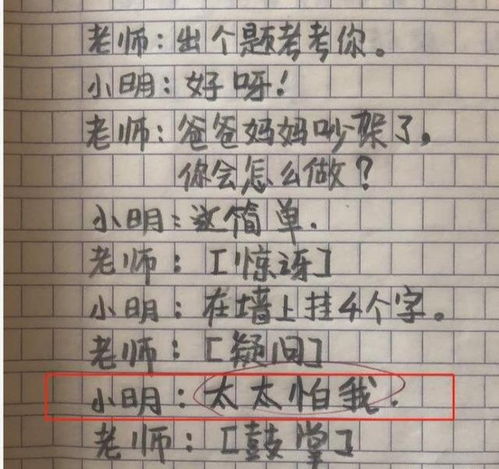 老师：出个题考考你。
小明：好呀！
老师：爸爸妈妈吵架了，
你会怎么做？
小明：这简单．
老师：［惊讶］
小明：在墙上挂4个字。
老师：［疑问］
小明：太太怕我．
老师：［鼓掌］